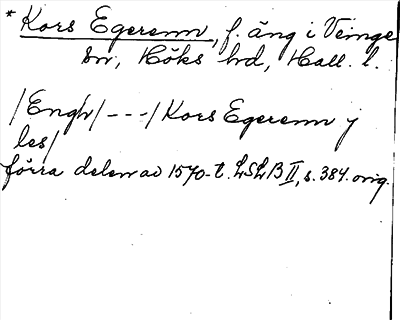 * Kors Egerenn, f. äng i Veinge
sn, Höks hd, Hall. l.
/Engh/ - - - / Kors Egerenn j
les/
förra delen av 1570-t. LSLB II, s. 384. orig.